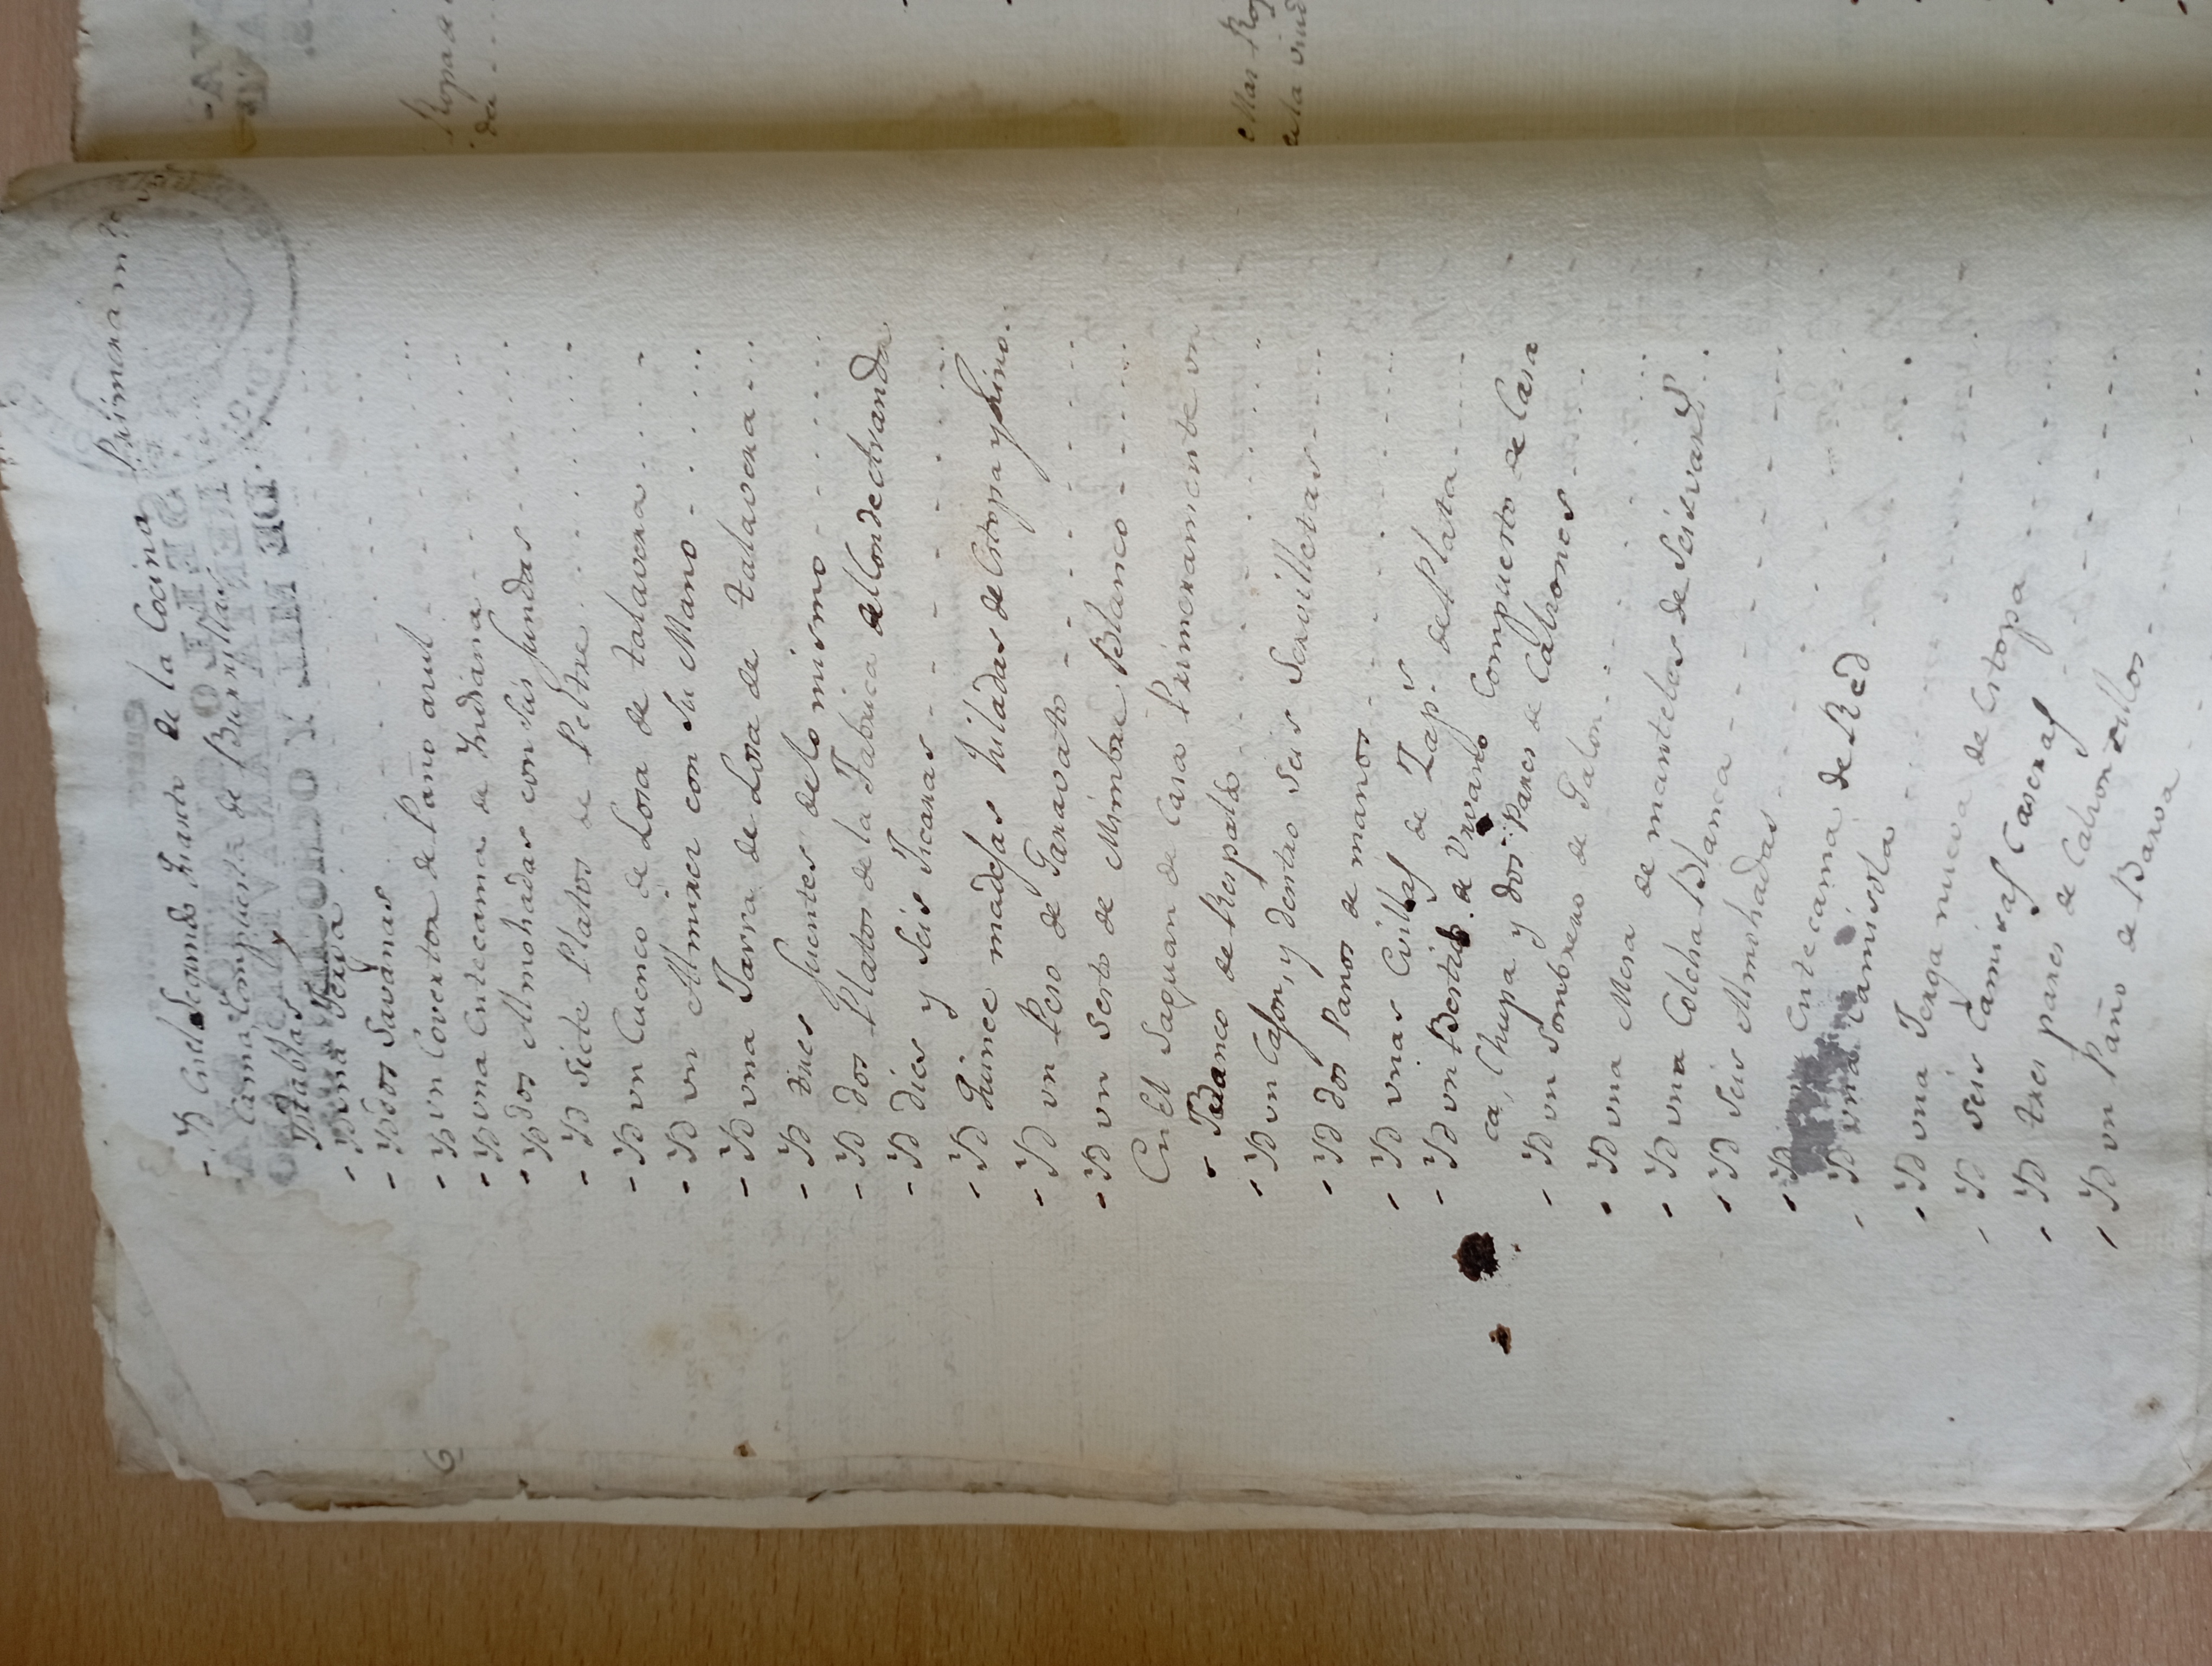 - Yd en el Segundo Quarto de la Cocina Primeram.te
Cama Compuesta de Burrillas
Y tablas
- Yd una Jerga
- Yd dos Savanas
- Yd un Covertor de Paño asul
- Yd una Entecama de Yndiana
- Yd dos Almohadas con sus fundas
- Yd Siete Platos de Peltre
- Yd vn Cuenco de Losa de talavera
- Yd vn Almires con su Mano
- Yd vna Jarra de Losa de talavera
- Yd tres fuentes de lo mismo
- Yd dos Platos de la Fabrica del Conde Aranda
- Yd dies y seis Jicaras
- Yd Quince madejas hiladas de Estopa y Lino
- Yd vn Peso de Garavato
- Yd vn Sesto de Mimbre Blanco
En El Saguan de Casa Primeramente vn
- Banco de Respaldo
- Yd vn Cajon, y dentro seis Servilletas
- Yd dos Panos de manos
- Yd vnas Evillas de Zap.s de Plata
- Yd vn Bestido de Vrvano Compuesto de Casa
ca, Chupa y dos Pares de Calsones
- Yd vn Sombrero de Galon
- Yd vna Mesa de manteles de seis varas
- Yd vna Colcha Blanca
- Yd seis Almohadas
- Yd Entecama de Red
- Yd vna Camisola
- Yd vna Jerga nueva de Estopa
- Yd seis Camisas Caseras
- Yd tres pares de Calsonsillos
- Yd vn Paño de Barva
6
Ropa de
da
ellas Rop
de la viud